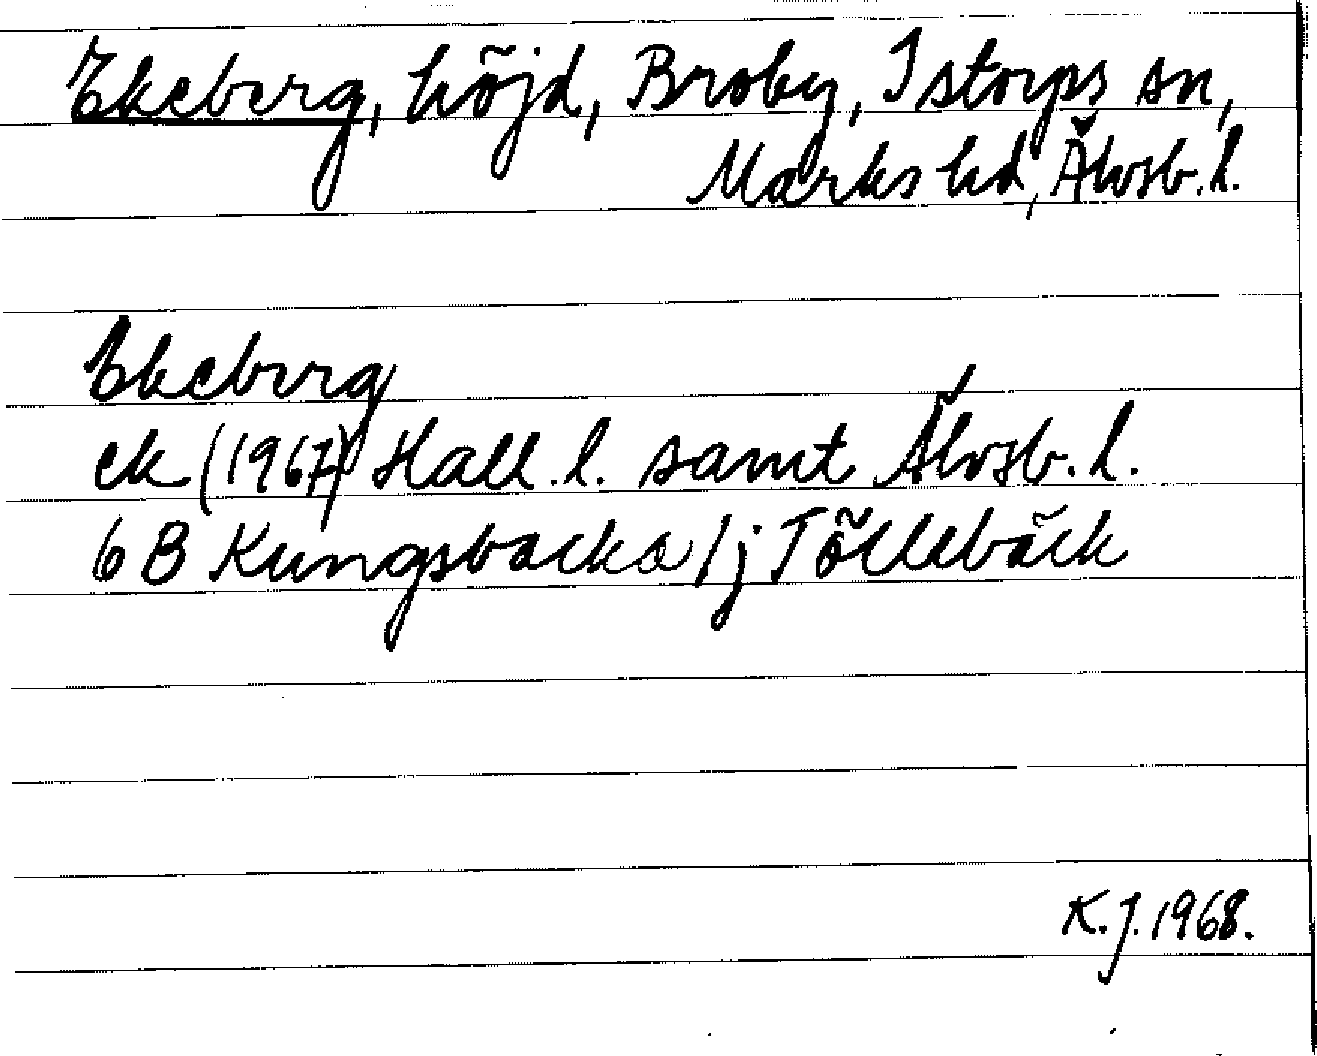 Ekeberg, höjd, Broby, Istorps sn,
Marks hd, Älvsb. l.
Ekeberg
ek (1967) Hall. l. samt Älvsb. l.
6 B Kungsbacka / j Töllebäck
K. J. 1968.